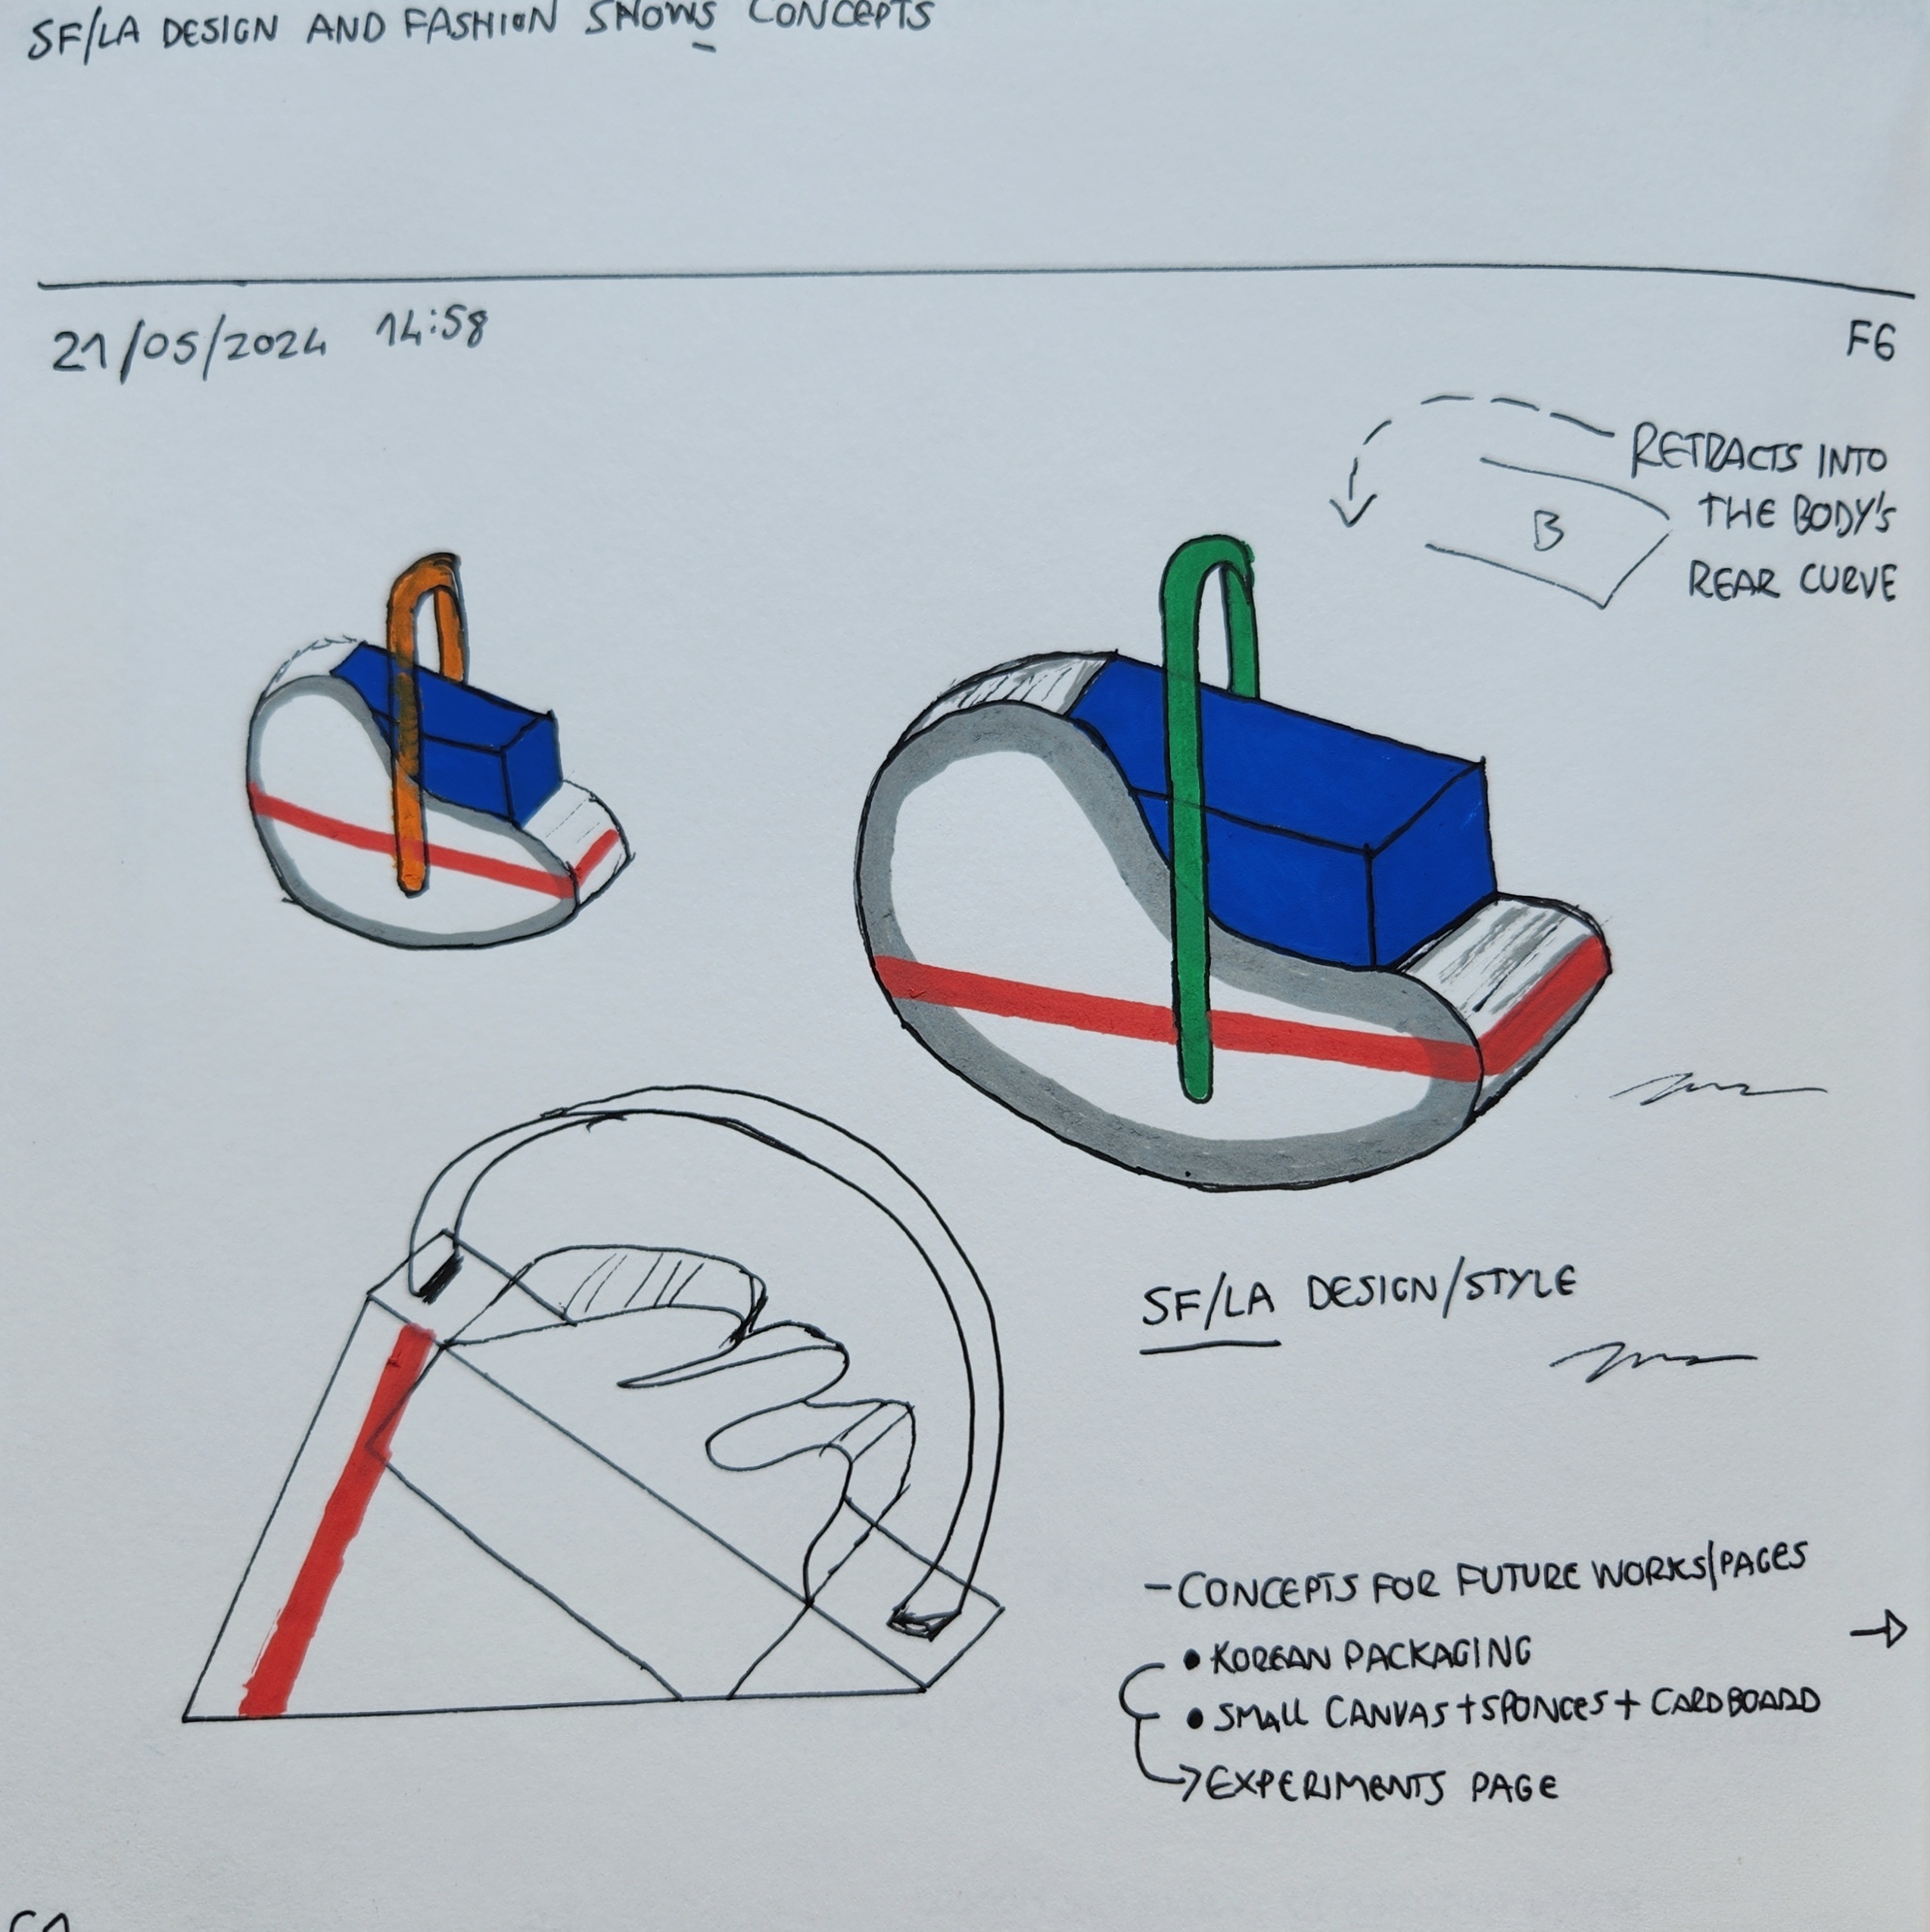 SF/LA DESIGN AND FASHION SHOWS CONCEPTS
21/05/2024 14:58
F6
RETRACTS INTO
THE BODY'S
REAR CURVE
B
SF/LA DESIGN/STYLE
-CONCEPTS FOR FUTURE WORKS/PAGES
• KOREAN PACKAGING
• SMALL CANVAS+SPONGES+CARDBOARD
→EXPERIMENTS PAGE